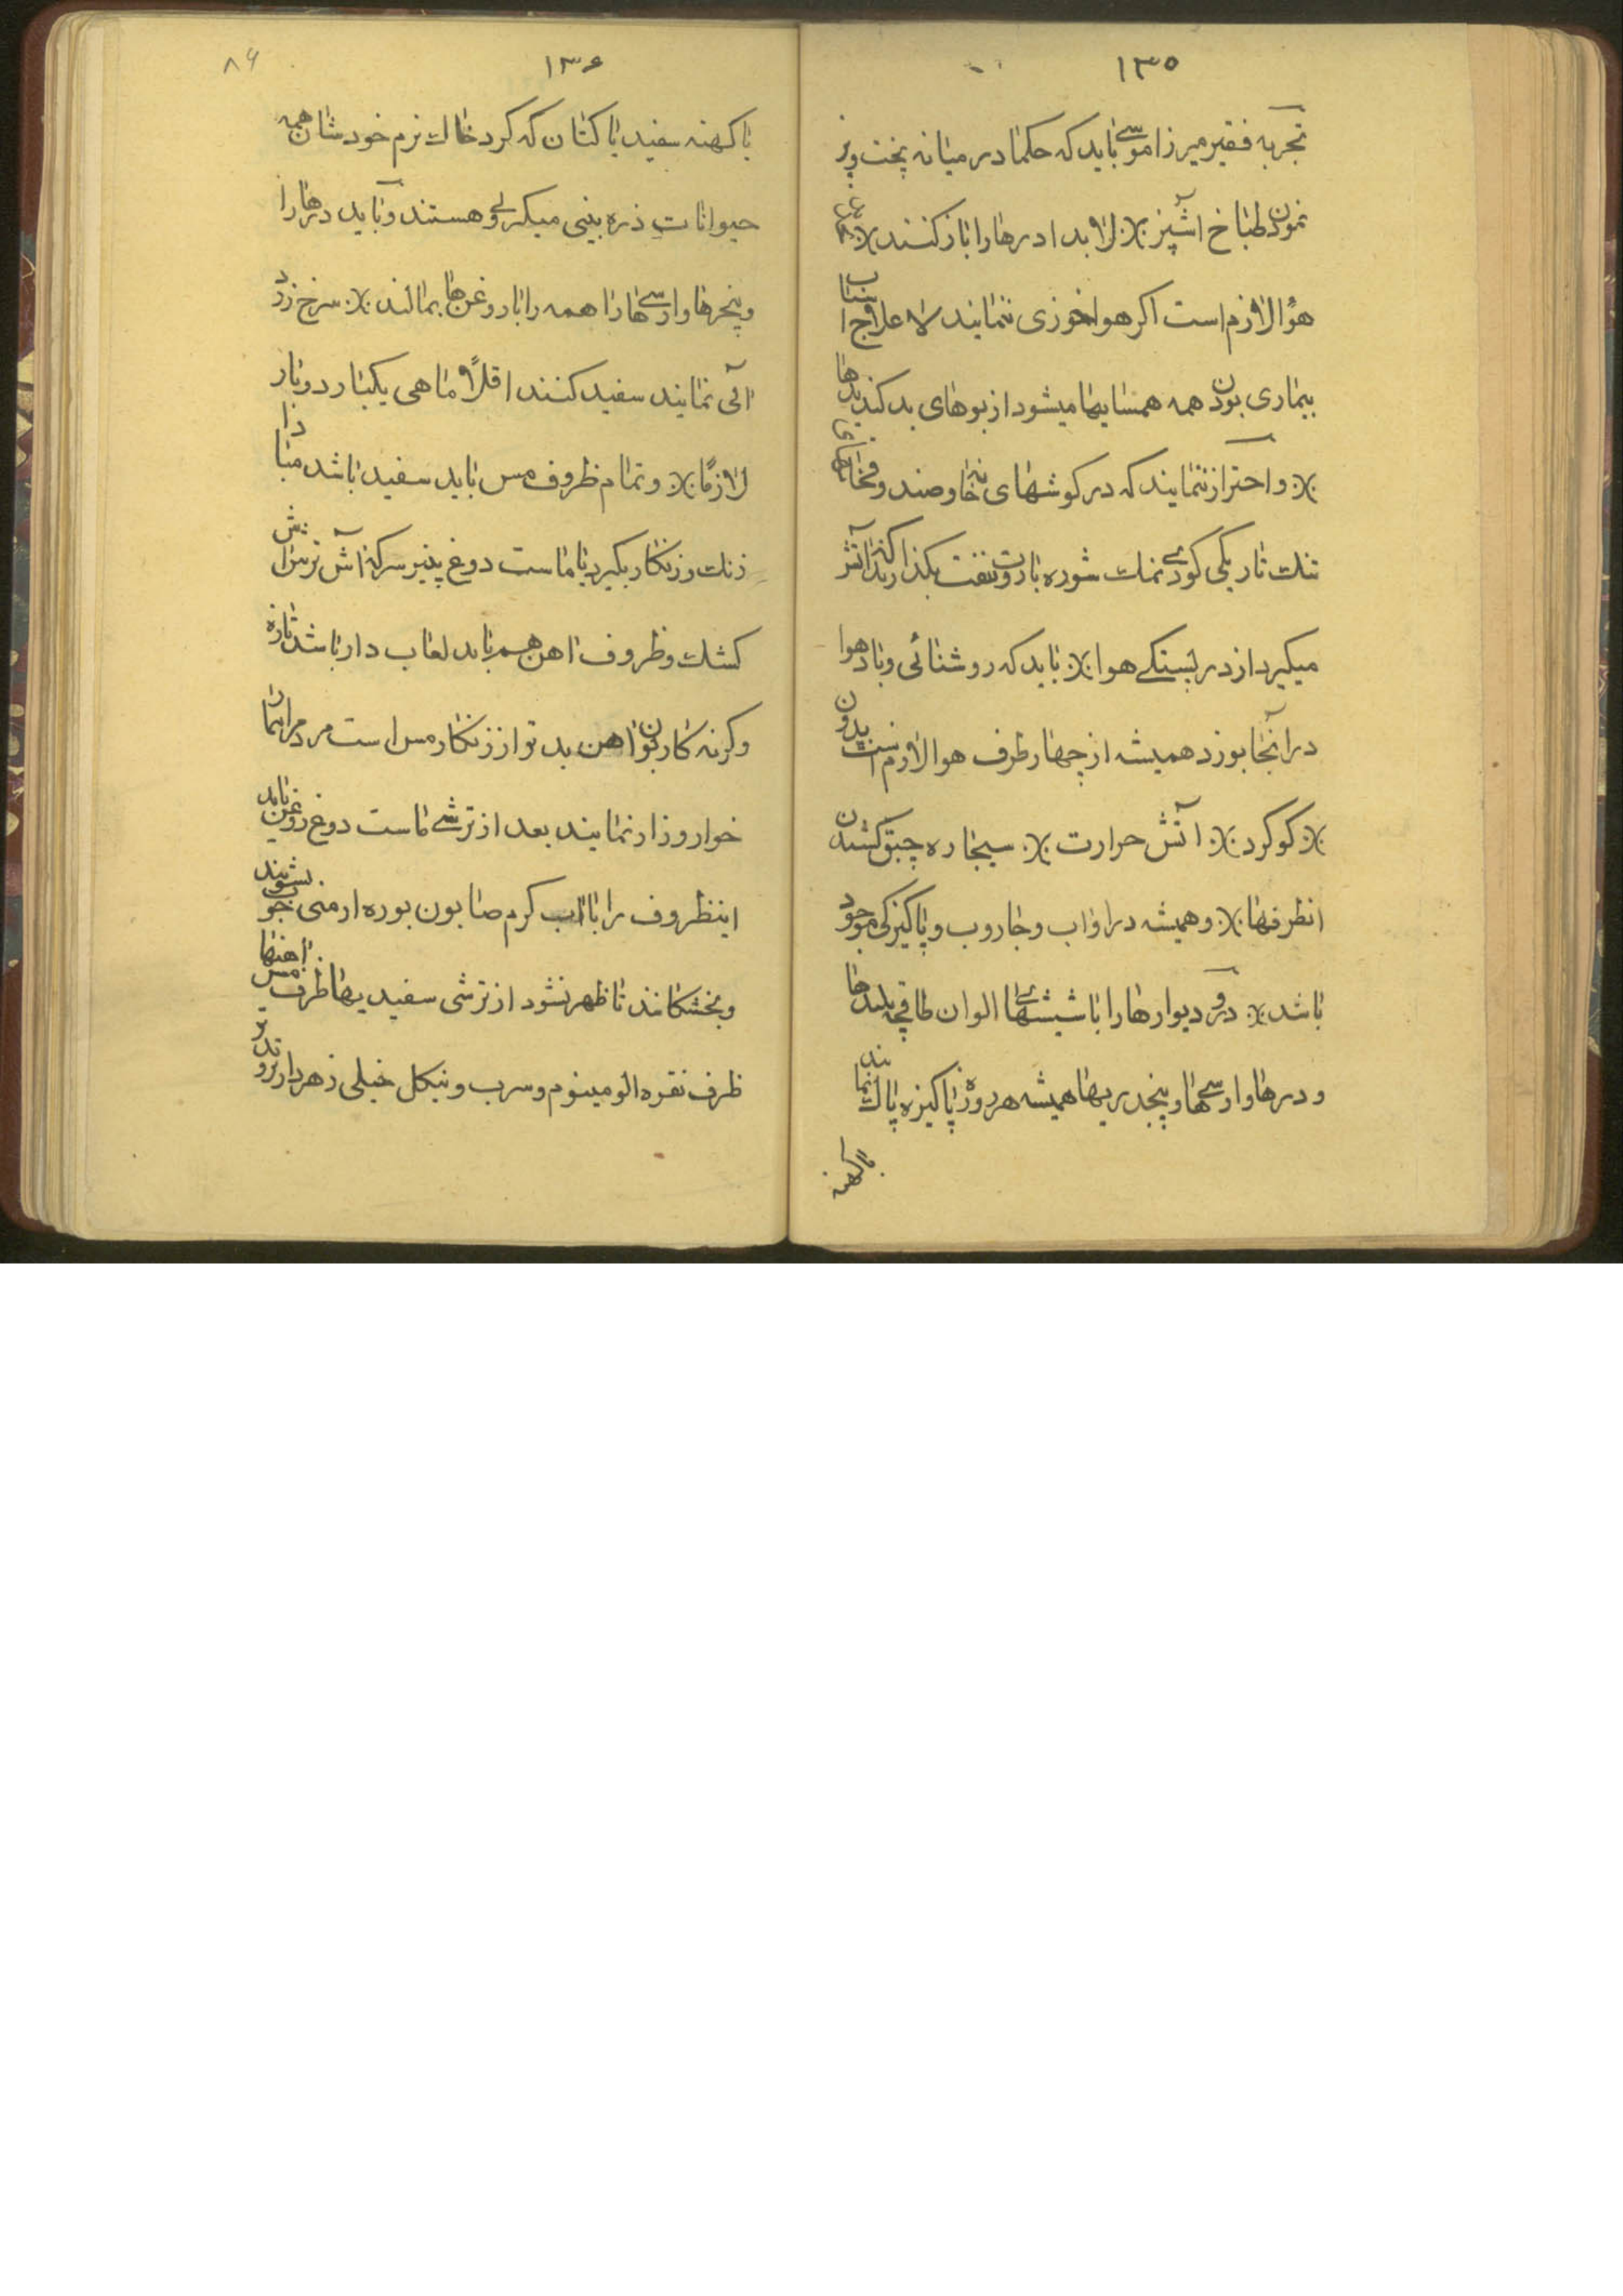 ۱۳۵
تجربه فقیر میرزا موسی باید که حکما در میانه پخت و پز
نمودن طباخ آشپز ٪ لابدا درها را باز کنند ٪
هوا لازم است اکر هواخوری ننمایند لا علاج اسباب
بیماری بودن همه همسایها میشود از بوهای بد کند بدها
٪ و احتراز ننمایند که در کوشهای نه خاوصند و
تنك تاریکی کودی نمك شوره باروت نفت بکذارند که آتش
میکیرد از در بستکی هوا ٪ باید که روشنائی و باد هوا
در آنجا بوزد همیشه از چهار طرف هوا لازم است بدون
٪ کوکرد ٪ آتش حرارت ٪ سیجاره چبق کشیدن
انطرفها ٪ و همیشه در او آب و جاروب و پاکیزکی موجود
باشد ٪ در و دیوارها را با شیشهای الوان طاقچه بلندها
و درها و ارسی ها و پنجدریها همیشه هر روزه پاکیزه پاك نمایند
باکهنه
۱۳۶
۸۶
با کهنه سفید یا کتان که کرد خاك نرم خودشان همه
حیوانات ذره بینی میکرلی و هستند و باید درها را
و پنجرها و ارسی ها را همه را با روغن ها بمالند ٪ سرخ زرد
آبی نمایند سفید کنند اقلاً ماهی یکبار دو بار
لازماً ٪ و تمام ظروف مس باید سفید باشد مبادا
زنك و زنکار بکیرد با ماست دوغ پنیر سرکه آش ترش
کشك و ظروف آهن هم باید لعاب دار باشد تازه
وکرنه کاربون آهن بدتر از زنکار مس است مردمرا بیمار
خوار و زار نمایند بعد از ترشی ماست دوغ روغن باید
اینظروف را با آب کرم صابون بوره ارمنی خوب بشویند
و بخشکانند تا ظهر نشود از ترشی سفیدیها ظرف مس آهنها
ظرف نقره الومینوم و سرب و نیکل خیلی زهردار ترند